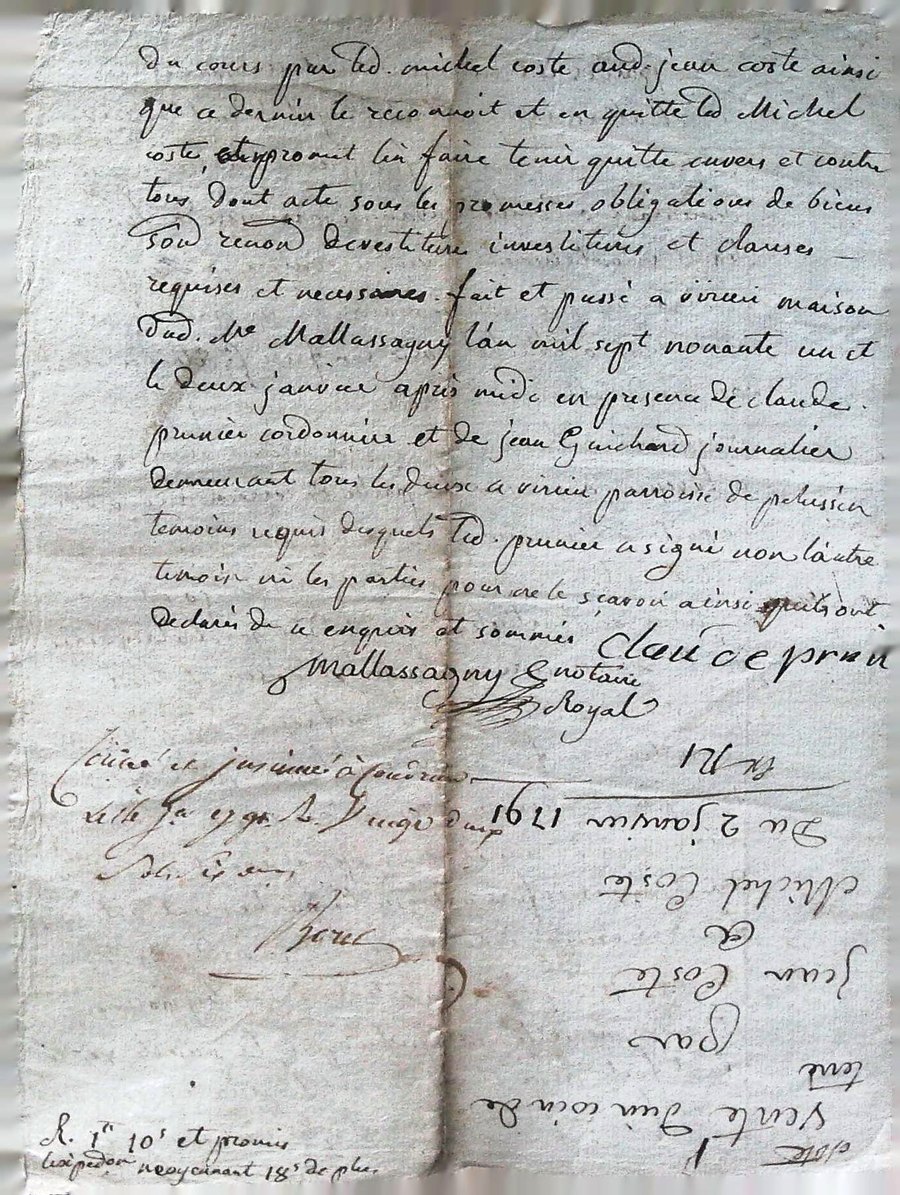 du cours par led. michel coste aud. jean coste ainsi
que ce dernier le reconnoit et en quitte led Michel
coste, et promet l'en faire tenir quitte envers et contre
tous, dont acte sous les promesses obligations de biens
renon devestiture investitures et clauses
requises et necessaires. fait et passé a virieu maison
dud. Me Mallassagny l'an mil sept nonante un et
le deux janvier après midi en presence de claude
prunier cordonnier et de jean Guichard journalier
demeurant tous les deux a virieu parroisse de pelussin
temoins requis desquels led. prunier a signé non l'autre
temoin ni les parties pour ne le sçavoir ainsi quils ont
declarés de ce enquis et sommés
claude prnin
Mallassagny notaire
Royal
Controlé et insinué à Condrieu
sols
R. 1# 10s et promis
moyennant 18s de plus
coste
Vente d'un coin de
terre
par
jean Coste
a
Michel Coste
Du 2 janvier 1791